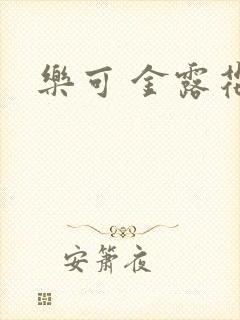 樂可 金露花
安簫夜